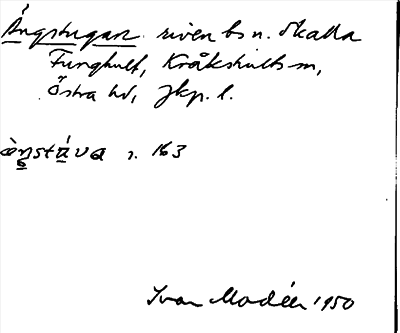 Ängstugan riven bs n. Skalla
Funghult, Kråkshults sn,
Östra hd, Jkp. l.
ὰṉstáva s. 163
Ivar Modéer 1950